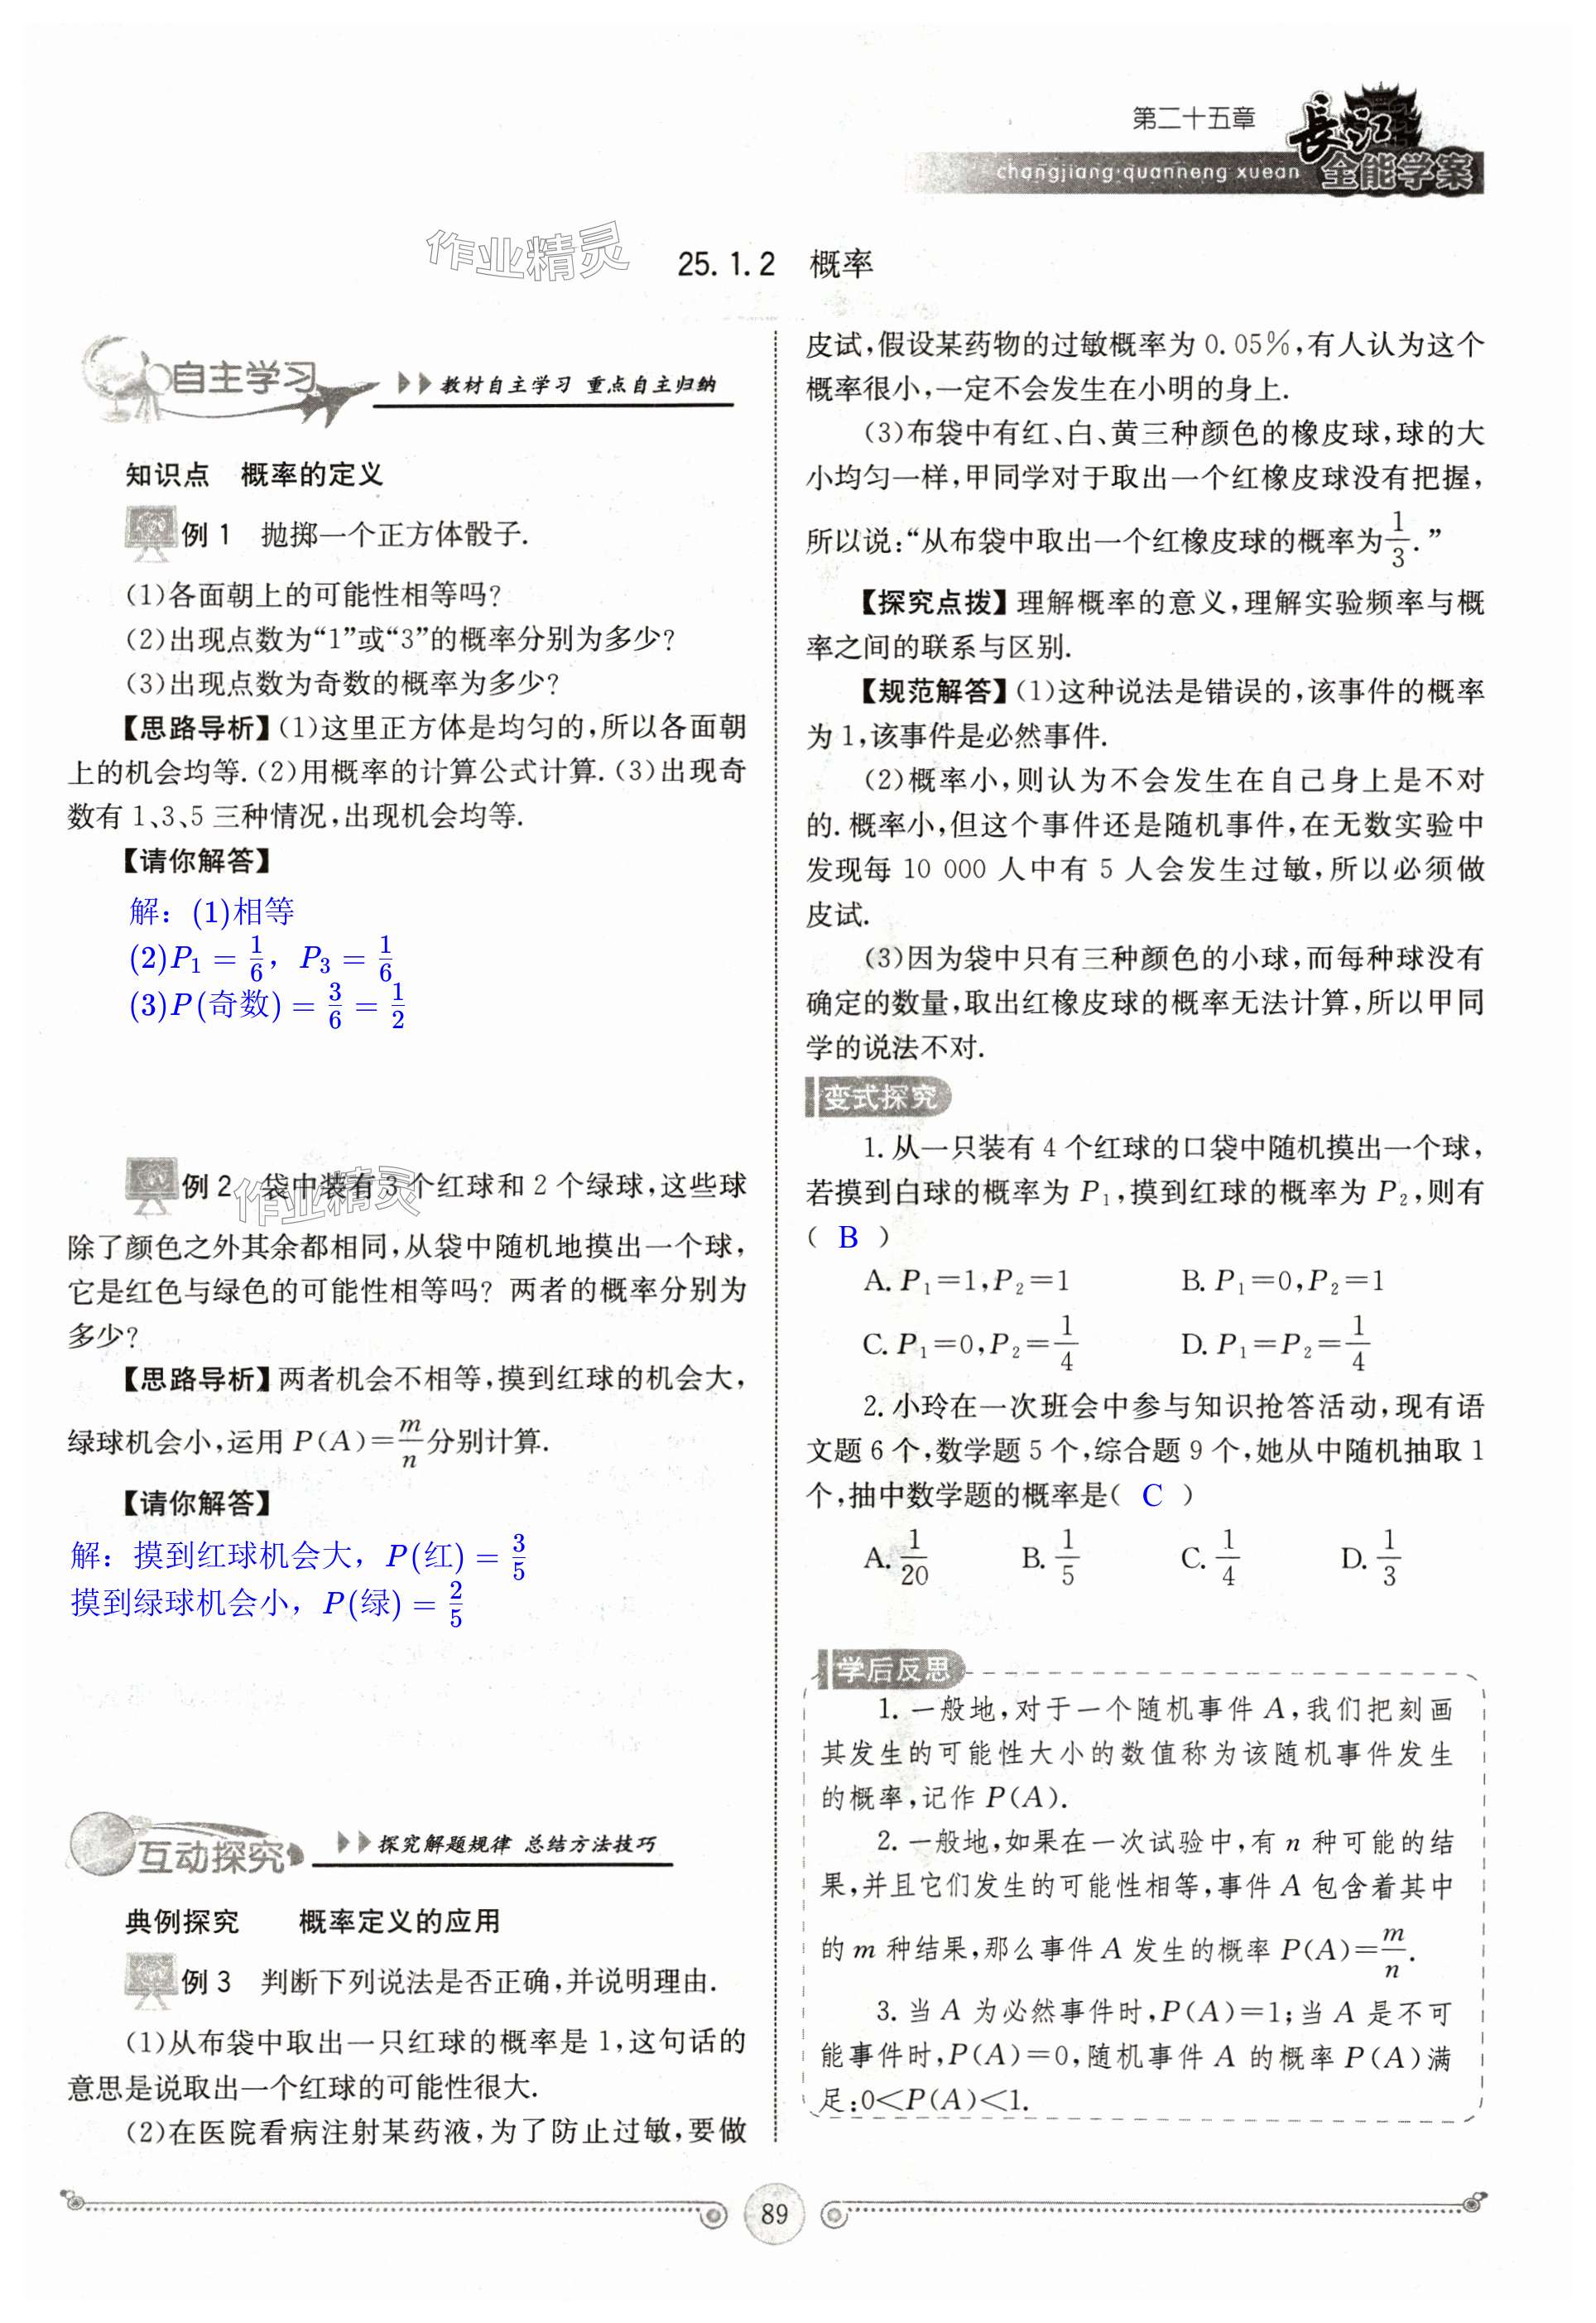 第二十五章
長江
全能学案
changjiang·quanneng xuean
作业精灵
25.1.2 概率
自主学习
教材自主学习 重点自主归纳
知识点 概率的定义
例 1 抛掷一个正方体骰子.
(1)各面朝上的可能性相等吗?
(2)出现点数为“1”或“3”的概率分别为多少?
(3)出现点数为奇数的概率为多少?
【思路导析】(1)这里正方体是均匀的,所以各面朝
上的机会均等.(2)用概率的计算公式计算.(3)出现奇
数有 1、3、5 三种情况,出现机会均等.
【请你解答】
解：(1)相等
(2)P₁ = 1/6，P₃ = 1/6
(3)P(奇数) = 3/6 = 1/2
作业精灵
例 2 袋中装有 3 个红球和 2 个绿球,这些球
除了颜色之外其余都相同,从袋中随机地摸出一个球,
它是红色与绿色的可能性相等吗? 两者的概率分别为
多少?
【思路导析】两者机会不相等,摸到红球的机会大,
绿球机会小,运用 P(A)=m/n分别计算.
【请你解答】
解：摸到红球机会大，P(红) = 3/5
摸到绿球机会小，P(绿) = 2/5
互动探究
探究解题规律 总结方法技巧
典例探究 概率定义的应用
例 3 判断下列说法是否正确,并说明理由.
(1)从布袋中取出一只红球的概率是 1,这句话的
意思是说取出一个红球的可能性很大.
(2)在医院看病注射某药液,为了防止过敏,要做
皮试,假设某药物的过敏概率为 0.05%,有人认为这个
概率很小,一定不会发生在小明的身上.
(3)布袋中有红、白、黄三种颜色的橡皮球,球的大
小均匀一样,甲同学对于取出一个红橡皮球没有把握,
所以说:“从布袋中取出一个红橡皮球的概率为1/3.”
【探究点拨】理解概率的意义,理解实验频率与概
率之间的联系与区别.
【规范解答】(1)这种说法是错误的,该事件的概率
为 1,该事件是必然事件.
(2)概率小,则认为不会发生在自己身上是不对
的.概率小,但这个事件还是随机事件,在无数实验中
发现每 10 000 人中有 5 人会发生过敏,所以必须做
皮试.
(3)因为袋中只有三种颜色的小球,而每种球没有
确定的数量,取出红橡皮球的概率无法计算,所以甲同
学的说法不对.
变式探究
1.从一只装有 4 个红球的口袋中随机摸出一个球,
若摸到白球的概率为 P₁,摸到红球的概率为 P₂,则有
( B )
A. P₁=1,P₂=1 B. P₁=0,P₂=1
C. P₁=0,P₂=1/4 D. P₁=P₂=1/4
2.小玲在一次班会中参与知识抢答活动,现有语
文题 6 个,数学题 5 个,综合题 9 个,她从中随机抽取 1
个,抽中数学题的概率是( C )
A. 1/20 B. 1/5 C. 1/4 D. 1/3
学后反思
1.一般地,对于一个随机事件 A,我们把刻画
其发生的可能性大小的数值称为该随机事件发生
的概率,记作 P(A).
2.一般地,如果在一次试验中,有 n 种可能的结
果,并且它们发生的可能性相等,事件 A 包含着其中
的 m 种结果,那么事件 A 发生的概率 P(A)=m/n.
3.当 A 为必然事件时,P(A)=1;当 A 是不可
能事件时,P(A)=0,随机事件 A 的概率 P(A)满
足:0<P(A)<1.
89